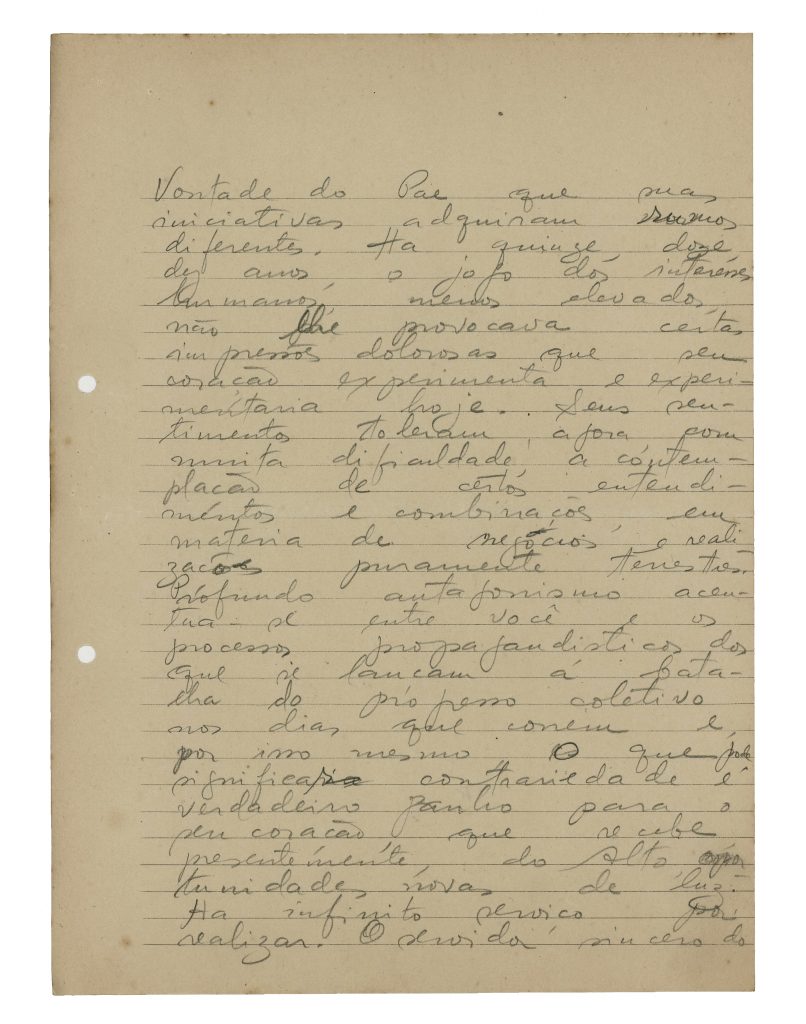 Vontade do Pae que suas
iniciativas adquiram rumos
diferentes. Ha quinze, doze
dez anos, o jogo dos interesses
humanos, menos elevados,
não lhe provocava certas
impressões dolorosas que seu
coração experimenta e experi-
mentaria hoje. Seus sen-
timentos toleram, agora com
muita dificuldade, a contem-
plação de certos entendi-
mentos e combinações, em
materia de negócios, e reali
zações puramente terrestres.
Profundo antagonismo acen-
tua-se entre você e os
processos propagandisticos dos
que se lançam á bata-
lha do progresso coletivo
nos dias que correm e,
por isso mesmo, o que pode
significar contrariedade é
verdadeiro ganho para o
seu coração que recebe
presentemente, do Alto opor
tunidades novas de luz.
Ha infinito serviço por
realizar. O servidor sincero do